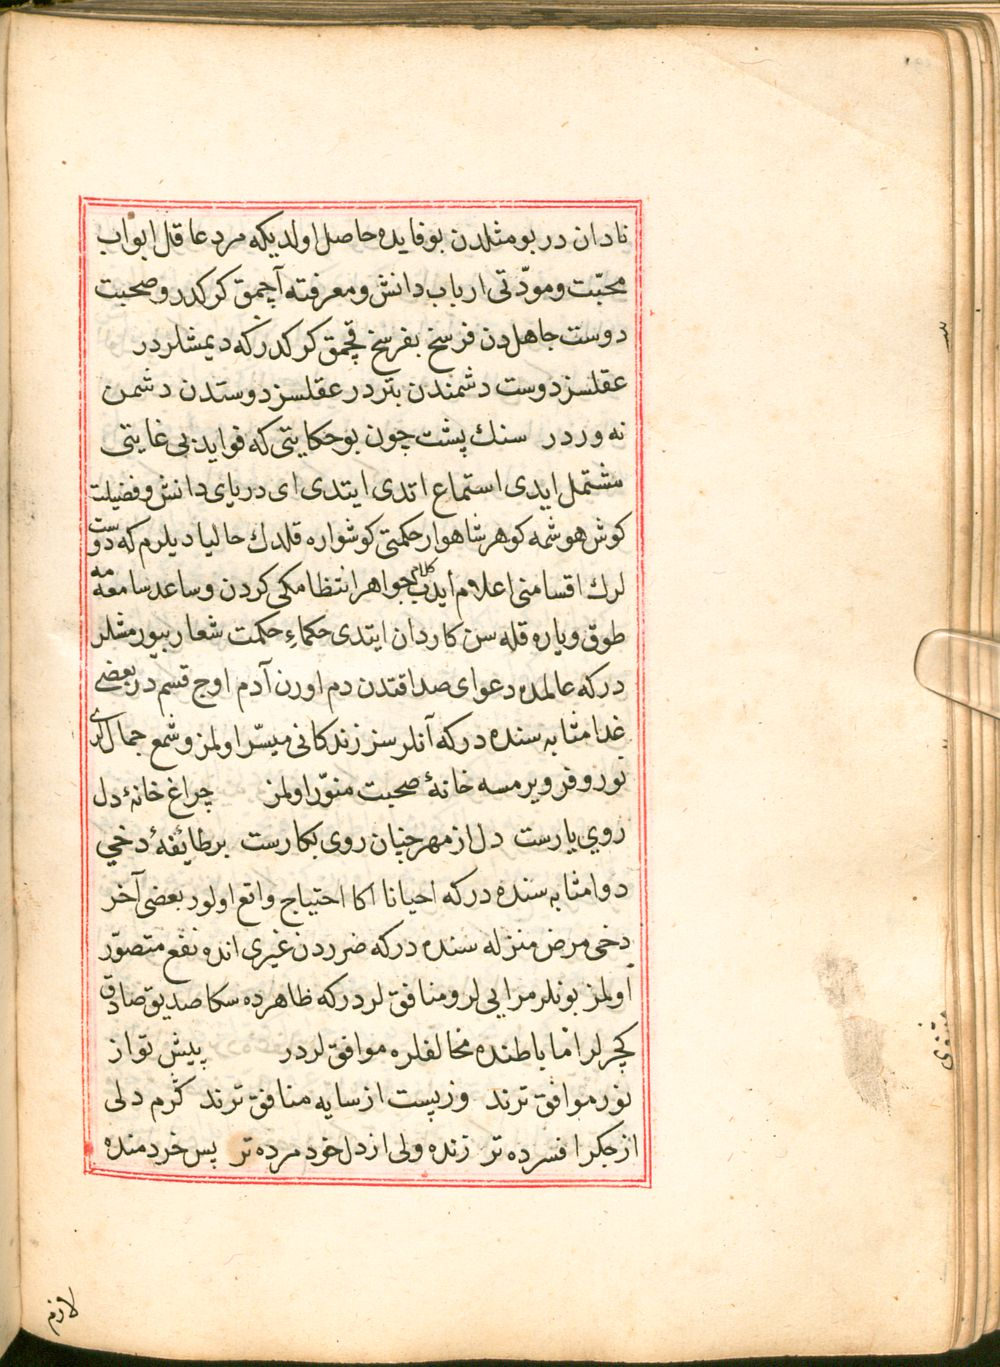 نادان در بو مثلدن بو فایده حاصل اولدیکه مرد عاقل ابواب
محبّت و مودّتی ارباب دانش و معرفته آچمق كرکدر و صحبت
دوست جاهلدن فرسخ بفرسخ قچمق كركدركه دیمشلردر
عقلسز دوست دشمندن بتردر عقلسز دوستدن دشمن
نه وردر سنك پشت چون بو حکایتی که فواید بی غایتی
مشتمل ایدی استماع اتدی ایتدی ای دریای دانش و فضیلت
كوش هوشمه کوهر شاهوار حکمتی کوشواره قلدك حالیا دیلرم که دوست
لرك اقسامنی اعلام ایدب کلام جواهر انتظامکی کردن و ساعد سامعه مه
طوق و یاره قله سن کاردان ایتدی حکماءِ حکمت شعار بیورمشلر
درکه عالمده دعوای صداقتدن دم اورن آدم اوج قسم در بعضی
غدا مثابه سنده درکه آنلرسز زندکانی میسّر اولمز و شمع جماللری
نور و فر ویرمسه خانهٔ صحبت منوّر اولمز چراغ خانهٔ دل
روي یارست دل از مهر چنان روی بکارست بر طائفهٔ دخي
دوا مثابه سنده درکه احیانا اکا احتیاج واقع اولور بعضی آخر
دخی مرض منزله سنده درکه ضرردن غیری انده نفع متصوّر
اولمز بونلر مرایی لر و منافق لردرکه ظاهرده سکا صدیق صادق
کچرلر اما باطنده مخالفلره موافق لردر پیش تو از
نور موافق ترند وز پست از سایه منافق ترند کرم دلی
از جکر افسرده تر زنده ولی از دل خود مرده تر پس خردمنده
لازم
مثنوی